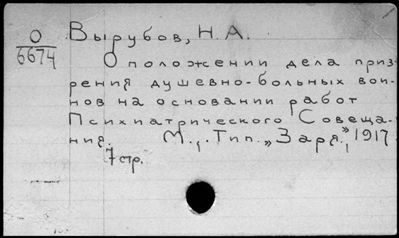 О
6674
Вырубов, Н. А.
О положении дела приз-
рения душевно-больных вои-
нов на основании работ
Психиатрического Совеща-
ния. М., Тип. „Заря", 1917.
7 стр.